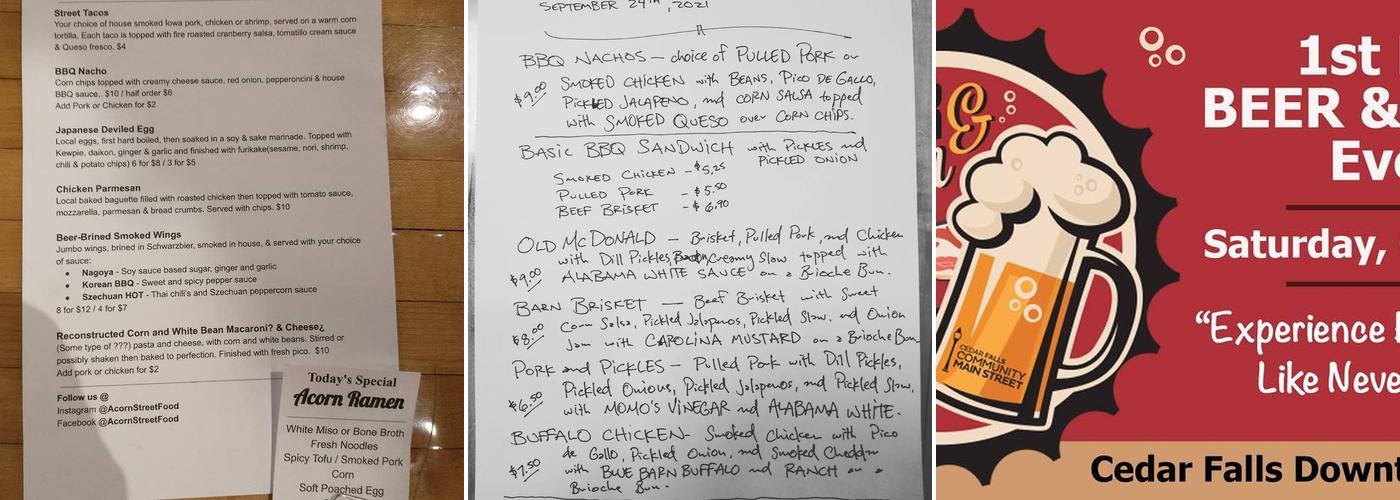 Street Tacos
Your choice of house smoked Iowa pork, chicken or shrimp, served on a warm corn
tortilla. Each taco is topped with fire roasted cranberry salsa, tomatillo cream sauce
& Queso fresco. $4
BBQ Nacho
Corn chips topped with creamy cheese sauce, red onion, pepperoncini & house
BBQ sauce,. $10 / half order $6
Add Pork or Chicken for $2
Japanese Deviled Egg
Local eggs, first hard boiled, then soaked in a soy & sake marinade. Topped with
Kewpie, daikon, ginger & garlic and finished with furikake(sesame, nori, shrimp,
chili & potato chips) 6 for $8 / 3 for $5
Chicken Parmesan
Local baked baguette filled with roasted chicken then topped with tomato sauce,
mozzarella, parmesan & bread crumbs. Served with chips. $10
Beer-Brined Smoked Wings
Jumbo wings, brined in Schwarzbier, smoked in house, & served with your choice
of sauce:
• Nagoya - Soy sauce based sugar, ginger and garlic
• Korean BBQ - Sweet and spicy pepper sauce
• Szechuan HOT - Thai chili's and Szechuan peppercorn sauce
8 for $12 / 4 for $7
Reconstructed Corn and White Bean Macaroni? & Cheese¿
(Some type of ???) pasta and cheese, with corn and white beans. Stirred or
possibly shaken then baked to perfection. Finished with fresh pico. $10
Add pork or chicken for $2
Follow us @
Instagram @AcornStreetFood
Facebook @AcornStreetFood
Today's Special
Acorn Ramen
White Miso or Bone Broth
Fresh Noodles
Spicy Tofu / Smoked Pork
Corn
Soft Poached Egg
SEPTEMBER 24TH, 2021
BBQ NACHOS - choice of PULLED PORK or
SMOKED CHICKEN with BEANS, PICO DE GALLO,
$9.00
PICKLED JALAPENO, and CORN SALSA topped
with SMOKED QUESO over CORN CHIPS.
BASIC BBQ SANDWICH with PICKLES and
PICKLED ONION
SMOKED CHICKEN - $5.25
PULLED PORK - $5.50
BEEF BRISKET - $6.90
OLD McDONALD - Brisket, Pulled Pork, and Chicken
with Dill Pickles, Creamy Slaw topped with
$9.00 ALABAMA WHITE SAUCE on a Brioche Bun.
BARN BRISKET - Beef Brisket with Sweet
Corn Salsa, Pickled Jalapenos, Pickled Slaw, and Onion
$8.00 Jam with CAROLINA MUSTARD on a Brioche Bun
PORK and PICKLES - Pulled Pork with Dill Pickles,
Pickled Onions, Pickled Jalapenos, and Pickled Slaw,
$6.50 with MOMO'S VINEGAR and ALABAMA WHITE.
BUFFALO CHICKEN - Smoked Chicken with Pico
de Gallo, Pickled Onion, and Smoked Cheddar
$7.50 with BLUE BARN BUFFALO and RANCH on a
Brioche Bun.
1st
BEER &
Eve
Saturday,
"Experience
Like Neve
&
CEDAR FALLS
COMMUNITY
MAIN STREET
Cedar Falls Downt